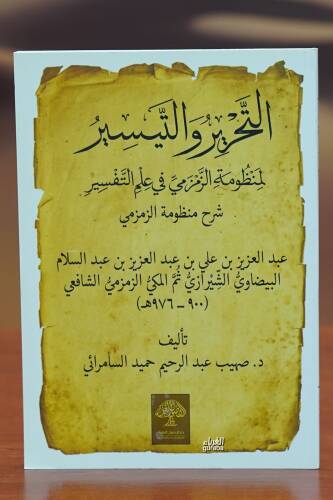 التَّحْرِيرُ وَالتَّيْسِيرُ
لِمَنْظُومَةِ الزَّمْزَمِيِّ فِي عِلْمِ التَّفْسِيرِ
شرح منظومة الزمزمي
عبد العزيز بن علي بن عبد العزيز بن عبد السلام
البيضاويُّ الشِّيرازيُّ ثُمَّ المكيُّ الزمزميُّ الشافعي
(٩٠٠-٩٧٦هـ)
تأليف
د. صهيب عبد الرحيم حميد السامرائي
الغرباء